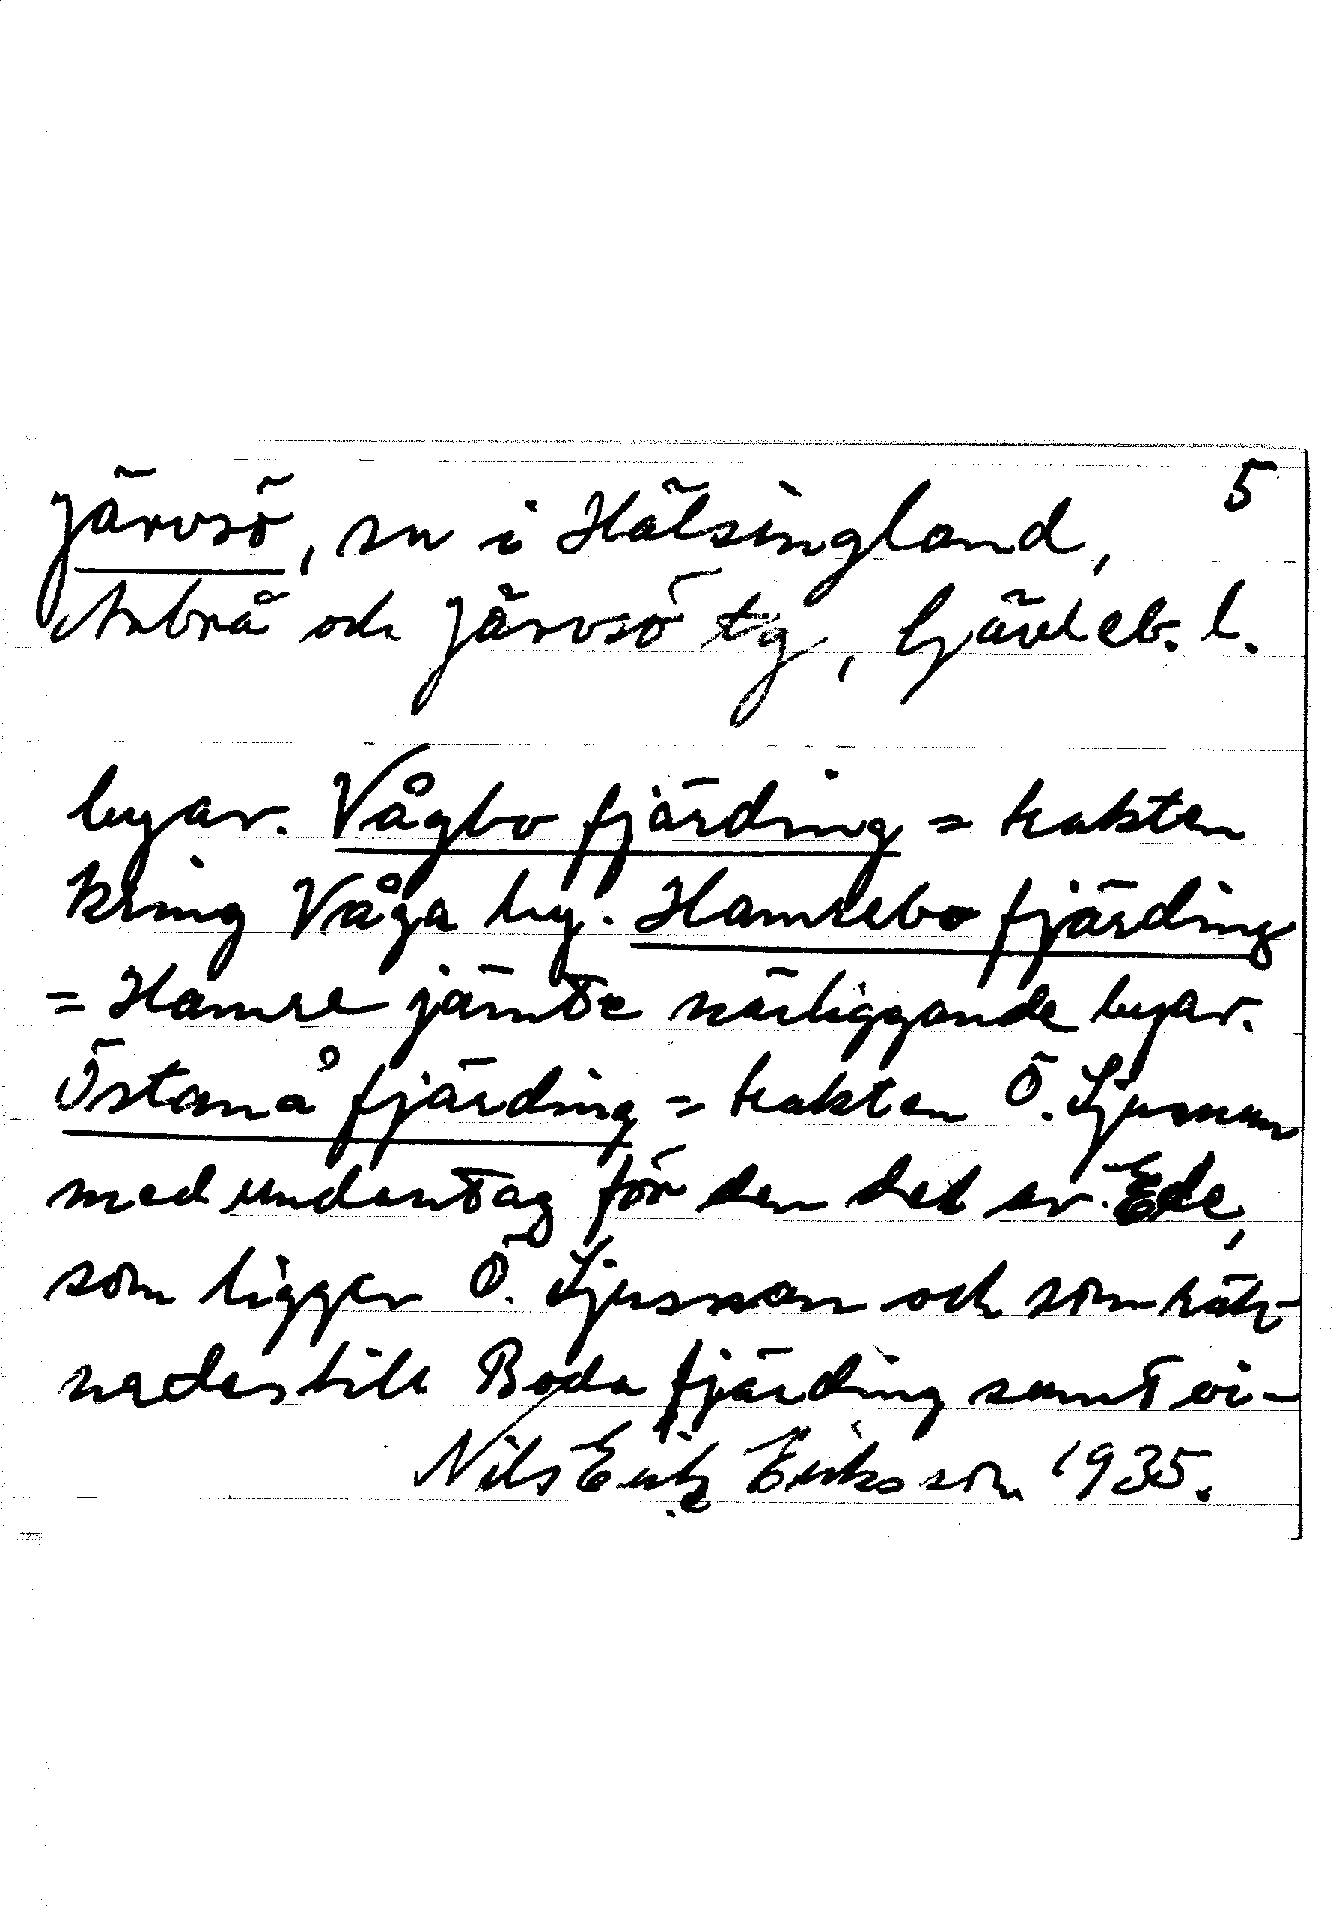 Järvsö, sn i Hälsingland, 5
Arbrå och Järvsö tg, Gävleb. l.
byar. Vågbo fjärding = trakten
kring Våga by. Hamrebo fjärding
= Hamre jämte närliggande byar.
Östanå fjärding = trakten Ö. Ljusnan
med undantag för den del av Ede,
som ligger Ö. Ljusnan och som räk-
nades till Boda fjärding samt vi-
Nils Erik Eriksson 1935.